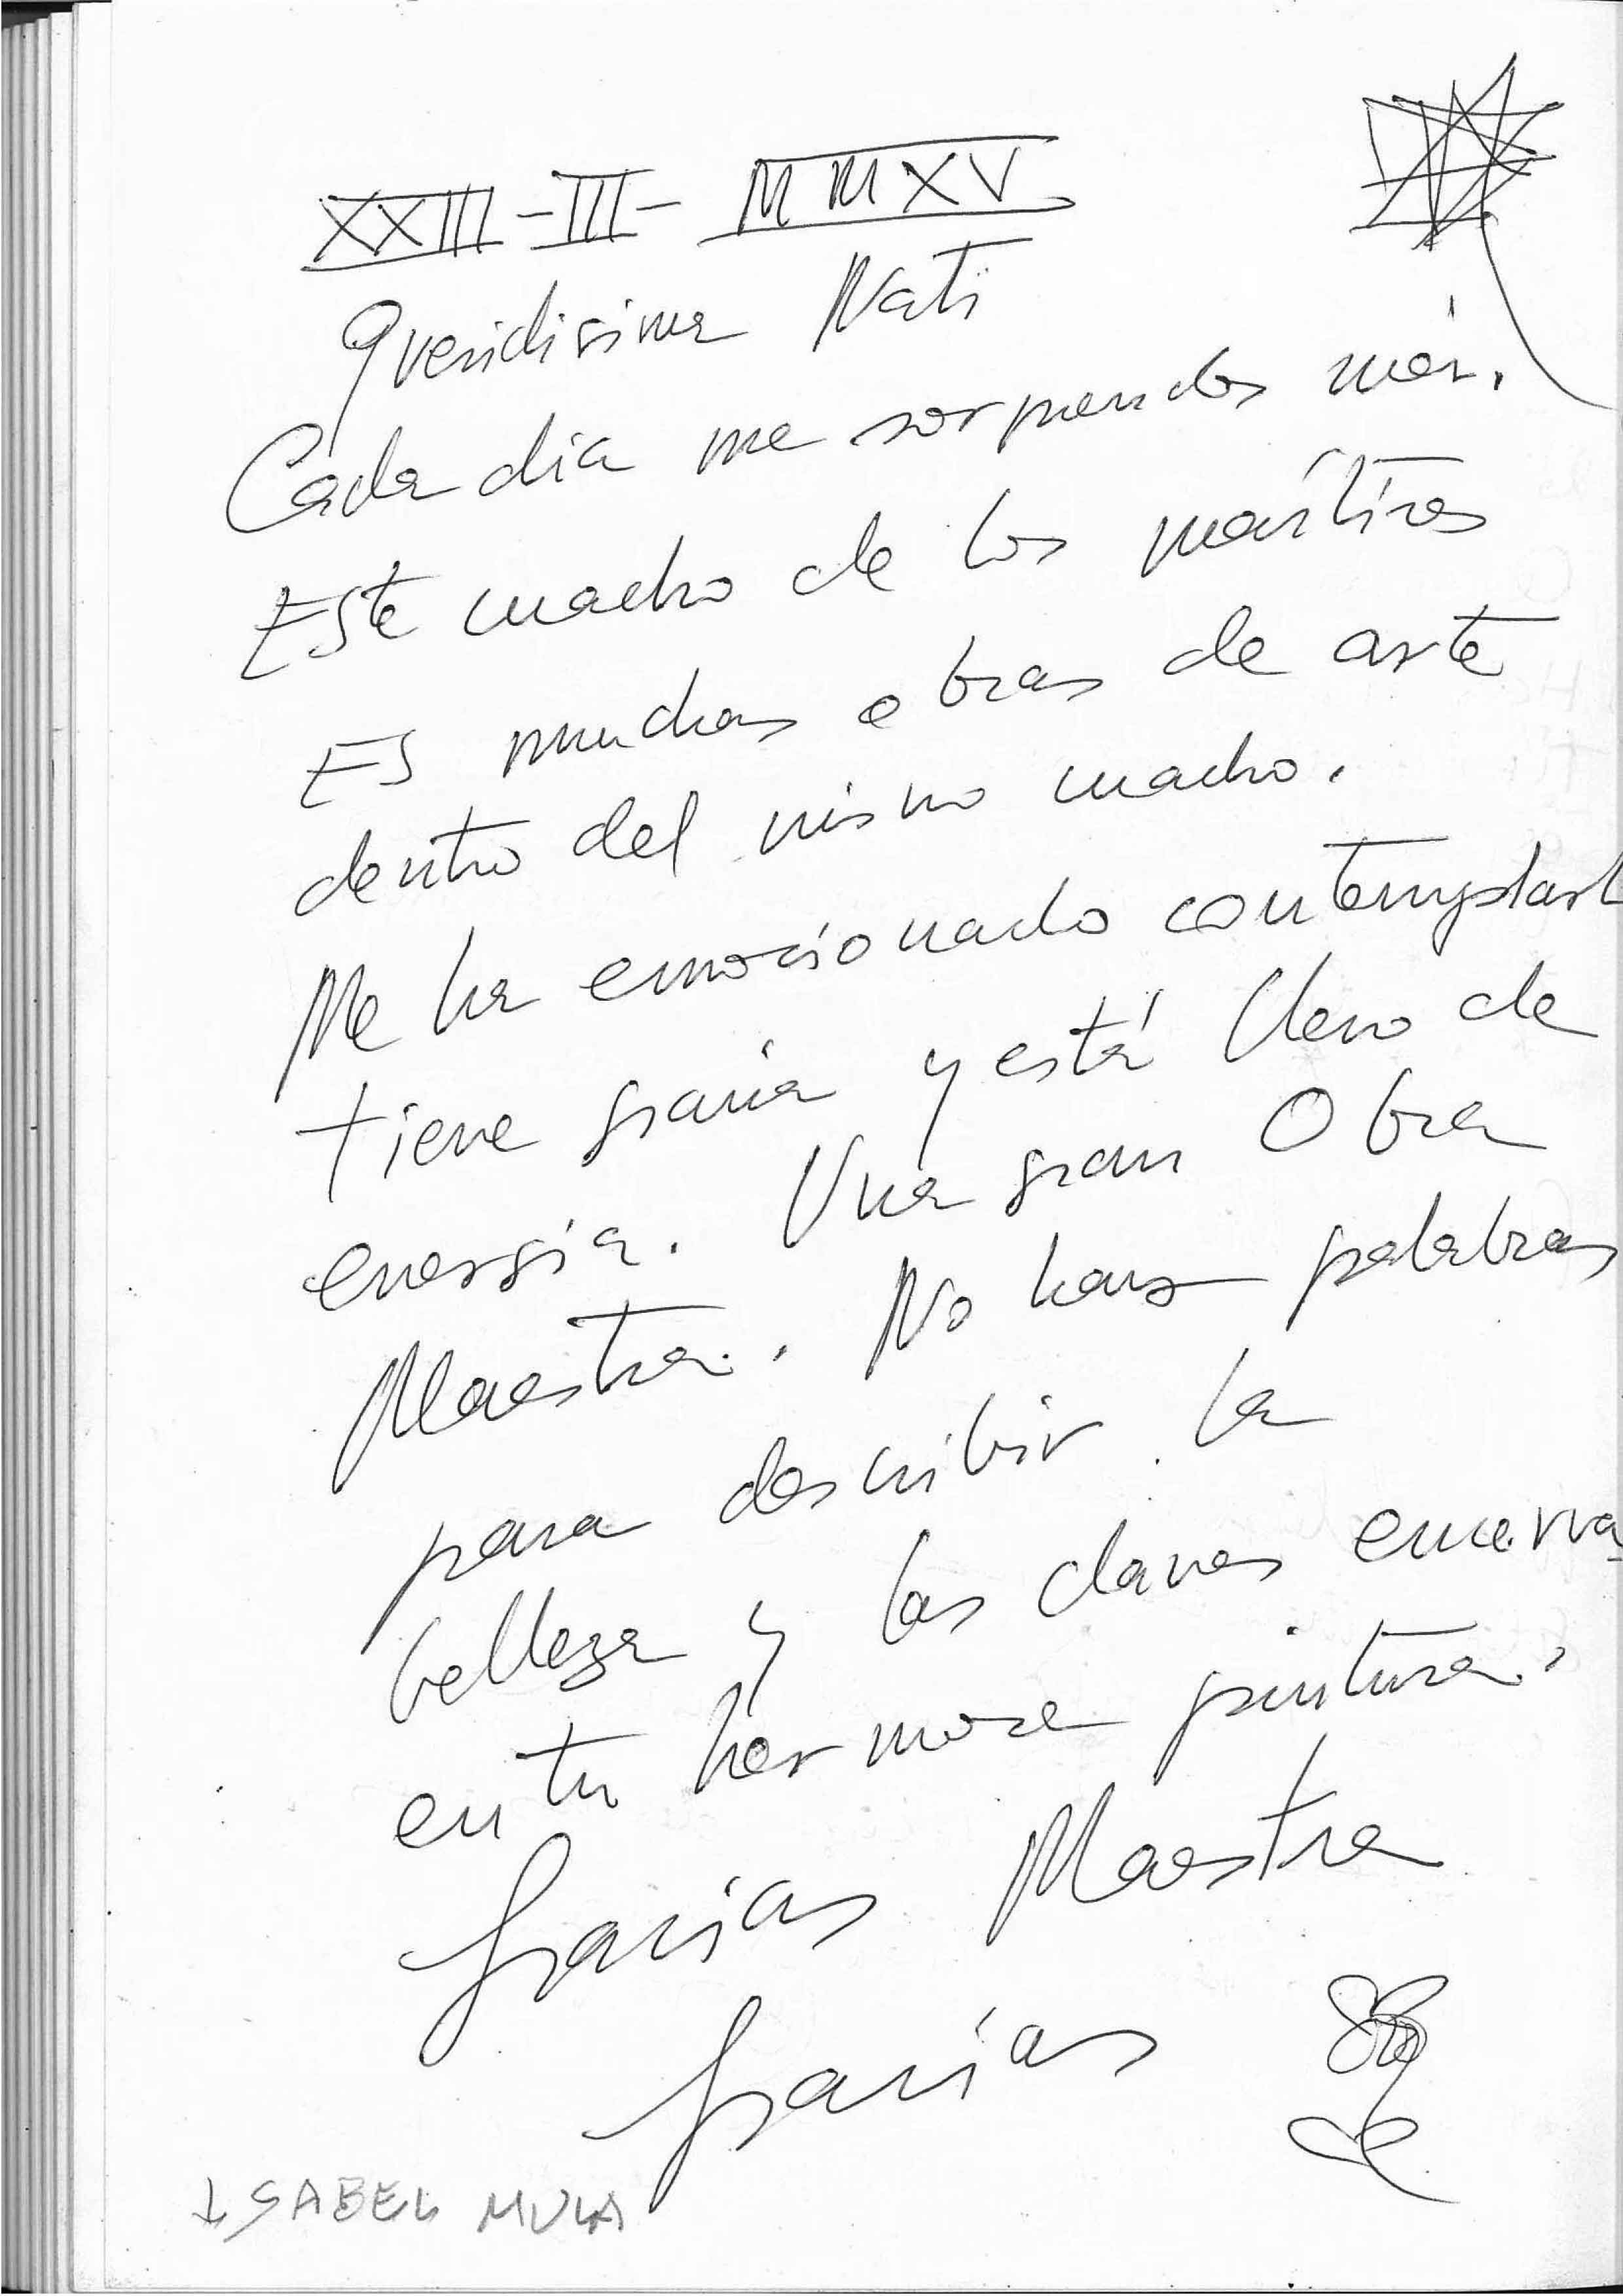 XXIII-III-MMXV
Queridisima Nati
Cada día me sorprendes más.
Este cuadro de los mártires
Es muchas obras de arte
dentro del mismo cuadro.
Me ha emocionado contemplarl
tiene gracia y está lleno de
energía. Una gran Obra
Maestra. No hay palabras
para describir la
belleza y las claves encerra
en tu hermosa pintura.
Gracias Maestra
Gracias
ISABEL MULA